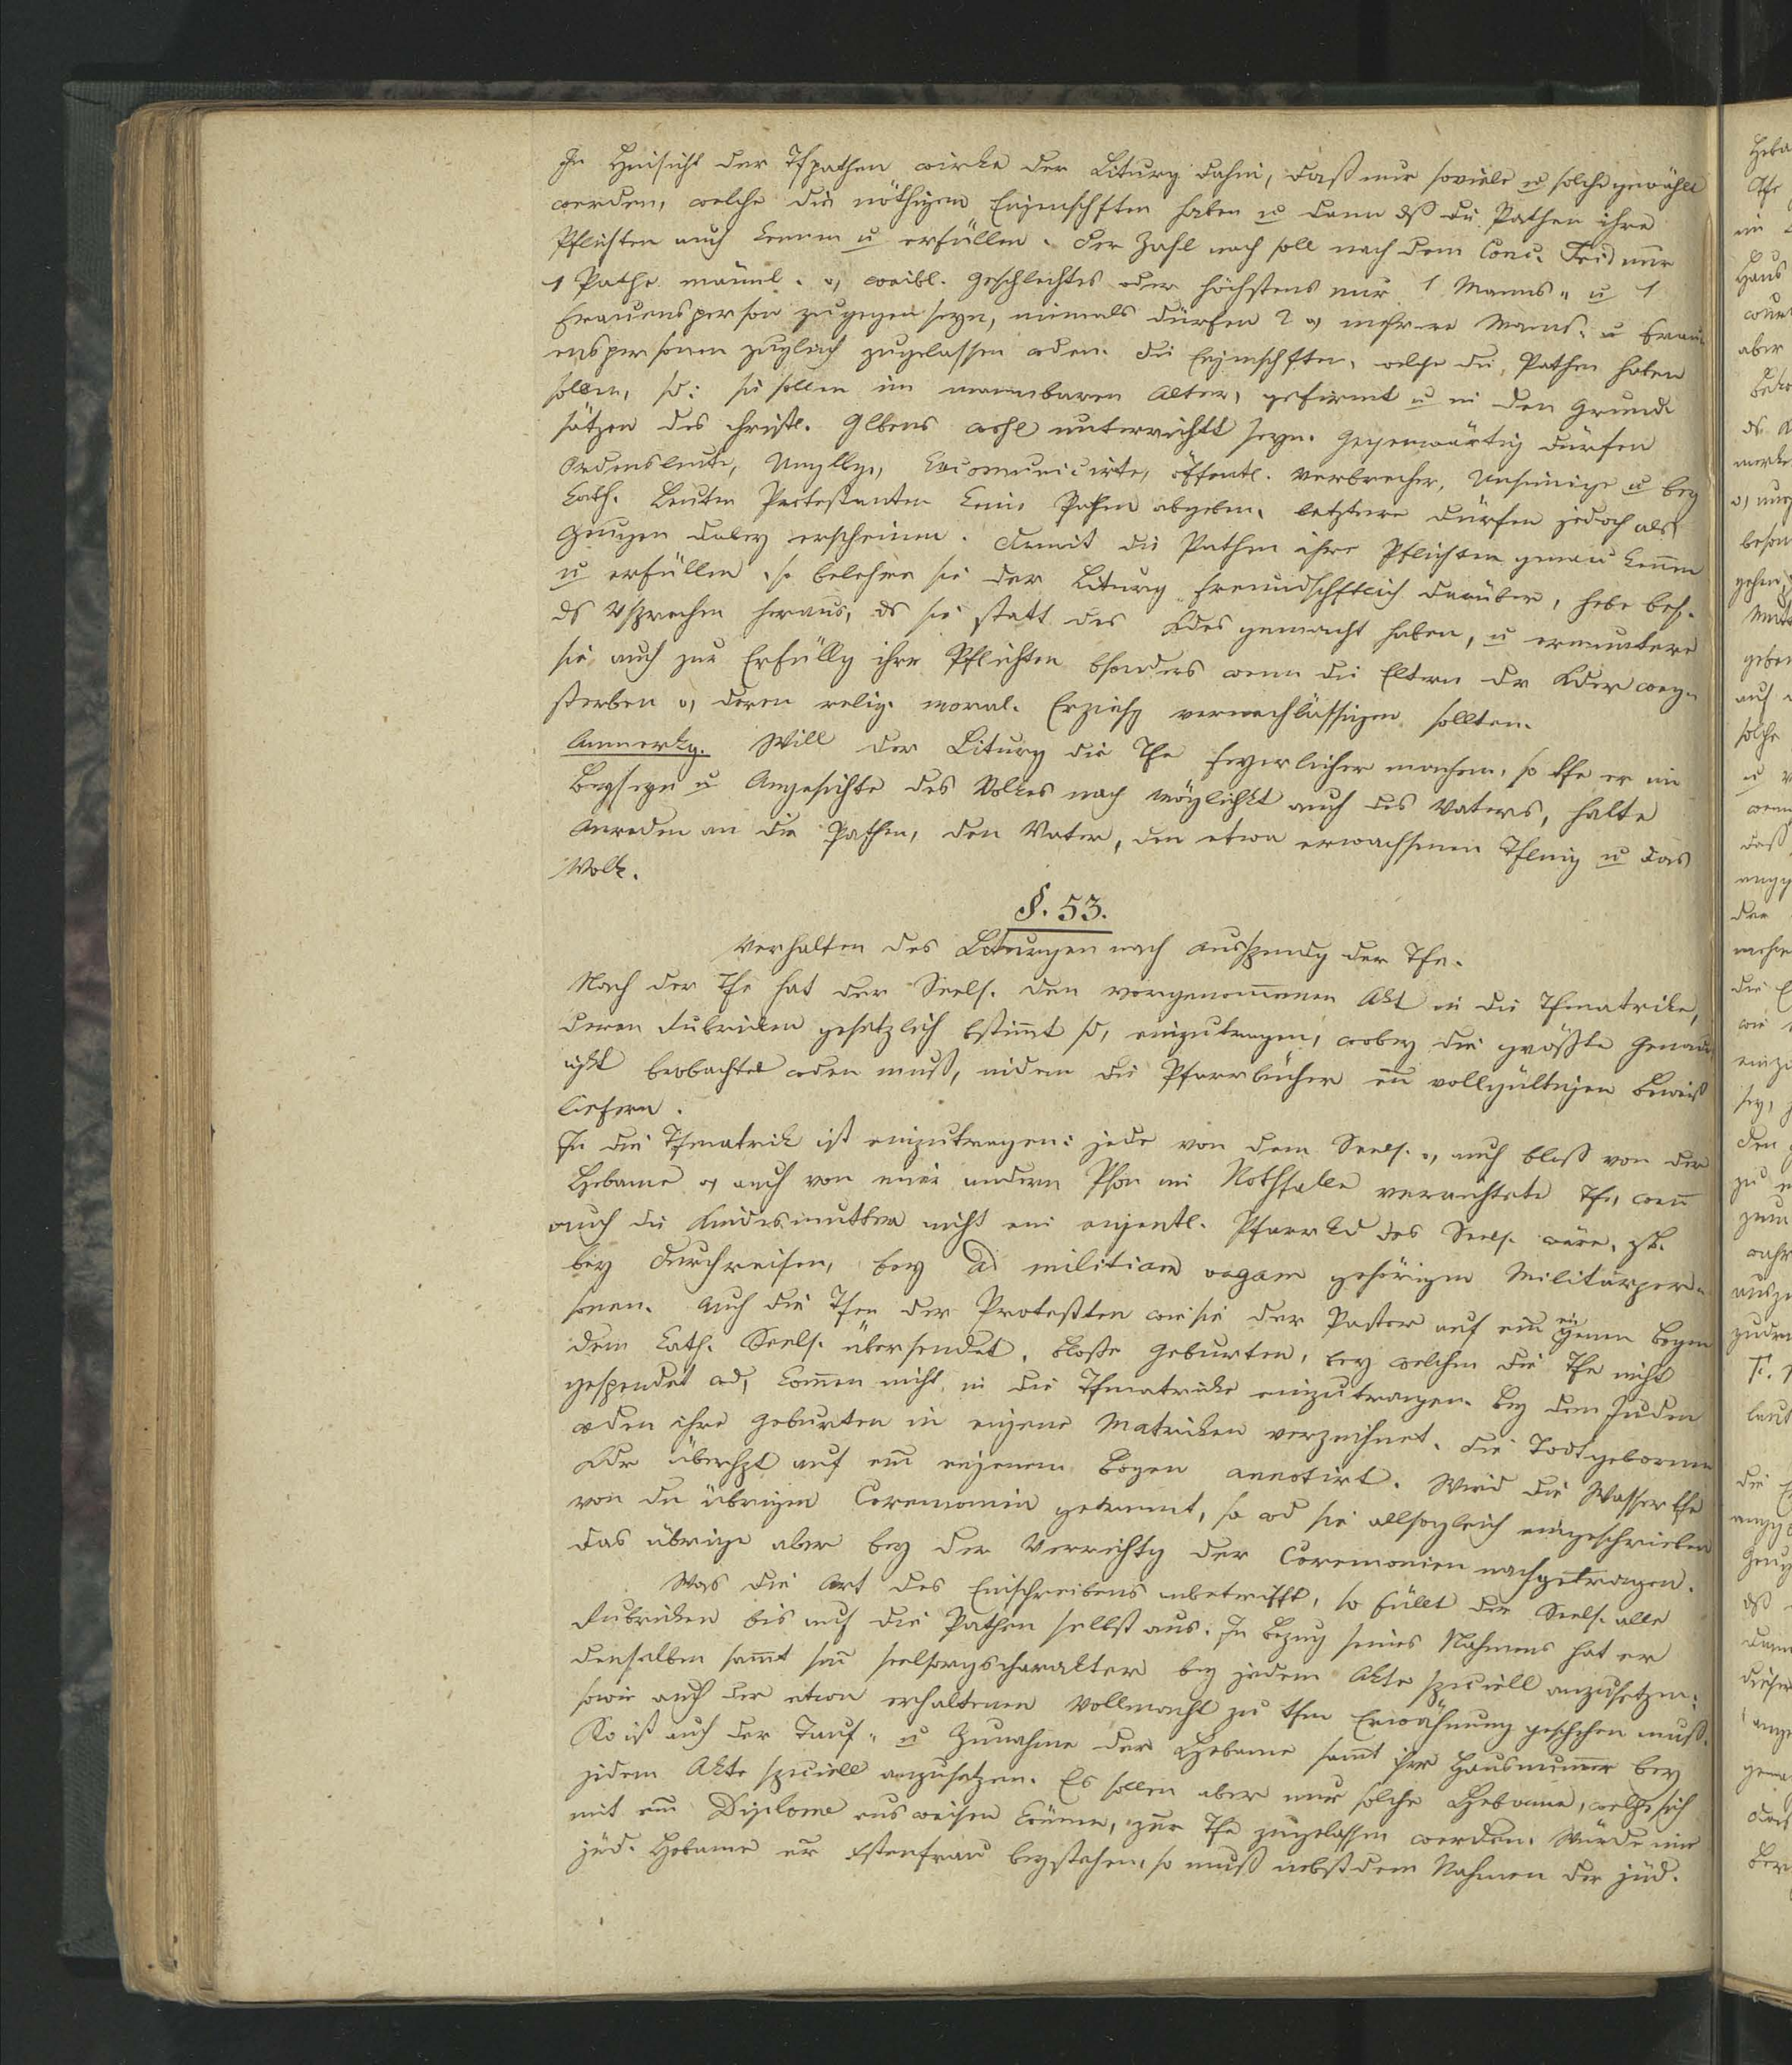 In Hinsicht der Tfpathen wirke der Liturg dahin, daß nur soviele u solche gewählt
werden, welche die nöthigen Eigenschften haben u dann dß die Pathen ihre
Pflichten auch kennen u erfüllen. Der Zahl nach soll nach dem Conc. Trid nur
1 Pathe mänl. o, weibl. Geschlechtes oder höchstens nur 1 Manns- u 1
Frauensperson zugegen seyn, niemals dürfen 2 o, mehrere Manns- u Frau-
enspersonen zugleich zugelassen wden. Die Eigenschften, welche die Pathen haben
sollen, sd: sie sollen im mannbaren Alter, gefirmt u in den Grund-
sätzen des christl. Glbens wohl unterrichtt seyn. Gegenwärtig dürfen
Ordensleute, Excomunicirte, öffentl. Verbrecher, Unsinnige u bey
kath. Leuten Protestanten keine Pathen abgeben, letztere dürfen jedoch als
Zeugen dabey erscheinen. Damit die Pathen ihre Pflichten genau kennen
u erfüllen, so belehre sie der Liturg freundschftlich darüber, hebe bes.
ds Vsprechen heraus, ds sie statt des Kdes gemacht haben, u ermuntere
sie auch zur Erfüllg ihrer Pflichten bsonders wenn die Eltern dr Kder weg-
sterben o, deren relig. moral. Erziehg vernachlässigen sollten.
Anmerkg. Will der Liturg die Tfe feyerlicher machen, so tfe er im
Beyseyn u Angesichte des Volkes nach Möglichkt auch des Vaters, halte
Anreden an die Pathen, den Vater, den etwa erwachsenen Tfling u das
Volk.
§. 53.
Verhalten des Liturgen nach Ausspendg der Tfe.
Nach der Tfe hat der Seels. den vorgenommenen Akt in die Tfmatrike,
deren Rubriken gesetzlich bstimt sd, einzutragen, wobey die größte Genau-
igkt beobachtet wden muß, indem die Pfarrbücher ein vollgültigen Beweiß
liefern.
In die Tfmatrik ist einzutragen: jede von dem Seels. o, auch bloß von der
Hebame o, auch von einer andern Pson im Nothfalle verrichtete Tfe, wenn
auch die Kindesmutter nicht ein eigentl. Pfarrkd des Seels. wäre, zB.
bey Durchreisen, bey ad militiam vagam gehörigen Militärper-
sonen. Auch die Tfen der Protestten wie sie der Pastor auf ein eigenen Bogen
dem kath. Seels. übersendet. Bloße Geburten, bey welchen die Tfe nicht
gespendet wd, kommen nicht in die Tfmatrike einzutragen. Bey den Juden
wden ihre Geburten in eigene Matriken verzeichnet. Die Todtgebornen
Kdr überhpt auf ein eigenem Bogen annotirt. Wird die Wassertfe
von den übrigen Ceremonien getrennt, so wd sie allsogleich eingeschrieben
das übrige aber bey der Verrichtg der Ceremonien nachgetragen.
Was die Art des Einschreibens anbetrifft, so füllt der Seels. alle
Rubriken bis auf die Pathen selbst aus. In Bezug seines Nahmens hat er
denselben sammt sein Seelsorgscharakter bey jedem Akte speciell anzusetzen;
sowie auch der etwa erhaltenen Vollmacht zu tfen Erwähnung geschehen muß.
So ist auch der Tauf- u Zunahme der Hebame sammt ihrer Hausnumer bey
jedem Akte speciell anzusetzen. Es sollen aber nur solche Hebame, welche sich
mit ein Diplome ausweisen können, zur Tfe zugelassen werden. Würde eine
jüd. Hebame er xstenfrau beystehen, so muß nebst dem Nahmen der jüd.